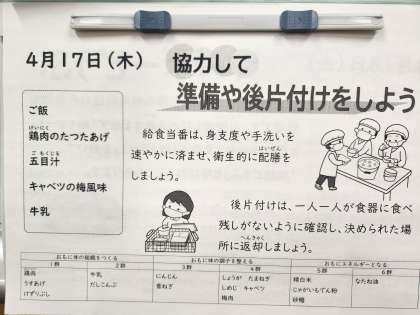 4月17日(木)
協力して
準備や後片付けをしよう
ご飯
鶏肉のたつたあげ
五目汁
キャベツの梅風味
牛乳
給食当番は、身支度や手洗いを
速やかに済ませ、衛生的に配膳を
しましょう。
後片付けは、一人一人が食器に食べ
残しがないように確認し、決められた場
所に返却しましょう。
おもに体の組織をつくる おもに体の調子を整える おもにエネルギーとなる
1群 2群 3群 4群 5群 6群
鶏肉 牛乳 にんじん しょうが たまねぎ 精白米 なたね油
うすあげ だしこんぶ 青ねぎ しめじ キャベツ じゃがいもでん粉
けずりぶし 梅肉 砂糖